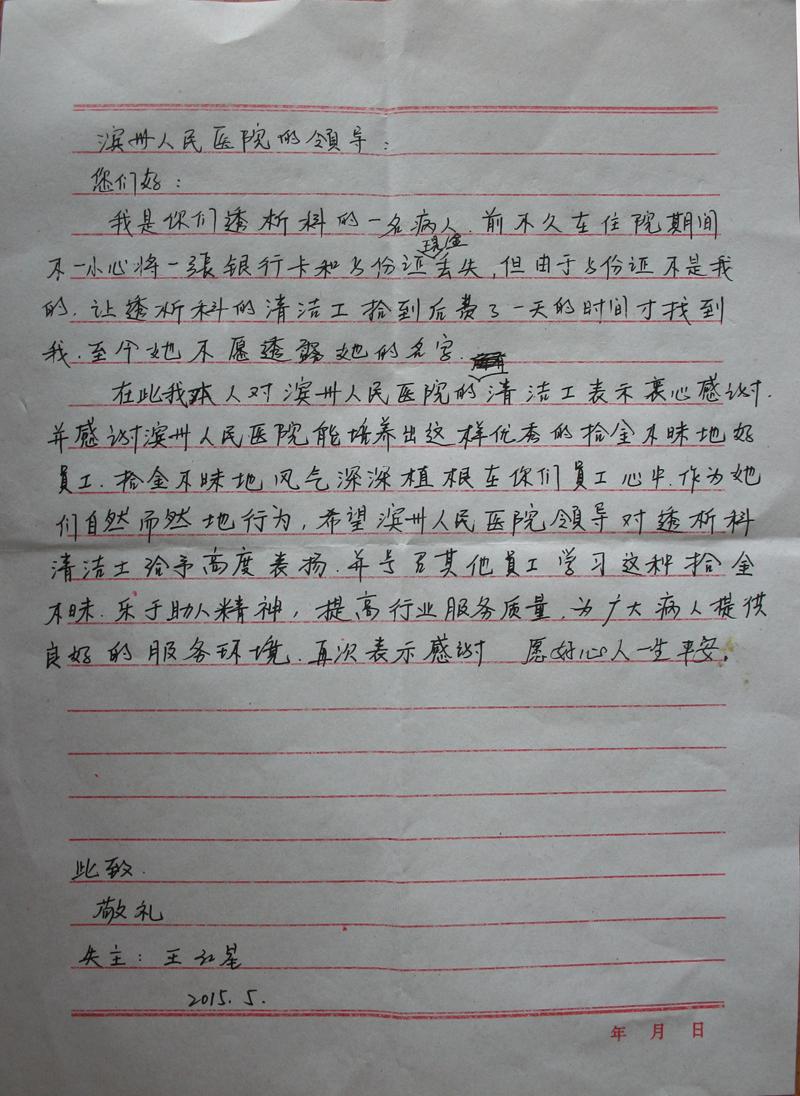 滨州人民医院的領导：
您们好：
我是你们透析科的一名病人.前不久在住院期间
不一小心将一張银行卡和身份证现金丢失,但由于身份证不是我
的.让透析科的清洁工拾到后费了一天的时间才找到
我.至今她不愿透露她的名字.
在此我本人对滨州人民医院的清洁工表示衷心感谢.
并感谢滨州人民医院能培养出这样优秀的拾金不昧地好
員工.拾金不昧地风气深深植根在你们員工心中.作为她
们自然而然地行为,希望滨州人民医院領导对透析科
清洁士给予高度表扬.并号召其他員工学习这种拾金
不昧.乐于助人精神,提高行业服务质量.为广大病人提供
良好的服务环境.再次表示感谢 愿好心人一生平安.
此致.
敬礼
失主：王红星
2015.5.
年 月 日